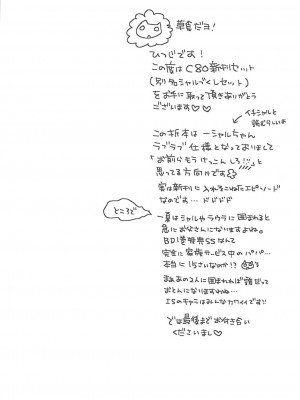 草食だヨ!
ひつじです!
この度はC80新刊セット
(別名シャルづくしセット)
をお手に取って頂きありがとう
ございます♡♡
イチシャルと
読むらしいす
この折本は一シャルちゃん
ラブラブ仕様となっておりまして
「お前らもうけっこんしろ!!」と
思ってる方向けです
実は新刊に入れそこねたエピソード
なのです…ドドドド
ところで
一夏はシャルやラウラに囲まれると
急にお父さんになりますよね。
BD1巻特典SSなんて
完全に家族サービス中のパパ…
本当に15さいなのか!?
まああの2人に囲まれれば誰だって
おとんになりますわね…
ISのキャラはみんなカワイイです!!
では最後までお付き合い
くださいまし♡